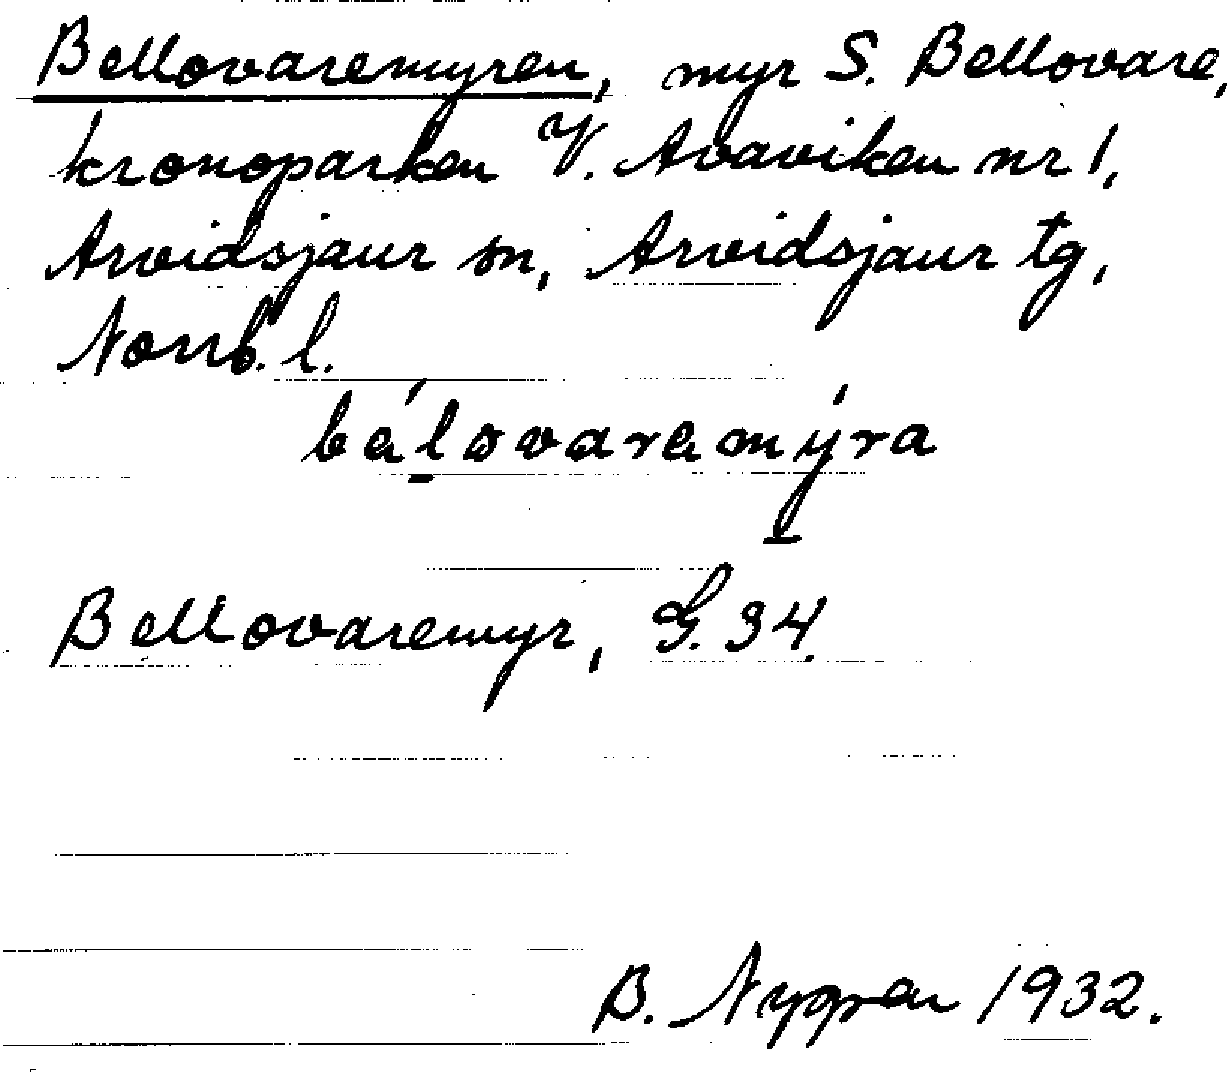 Bellovaremyren, myr S. Bellovare,
kronoparken V. Avaviken nr 1,
Arvidsjaur sn, Arvidsjaur tg,
Norrb. l.
bélovaremýra
Bellovaremyr, G. 34.
B. Nygren 1932.